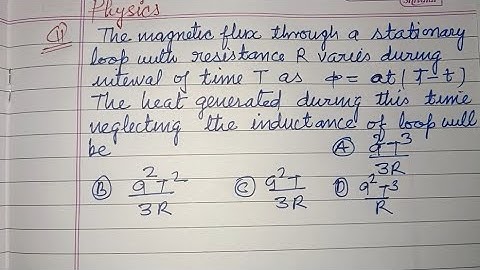 Physics
11 The magnetic flux through a stationary
loop with resistance R varies during
interval of time T as φ = at(T-t)
The heat generated during this time
neglecting the inductance of loop will
be
(A) a²T³/3R
(B) a²T²/3R (C) a²T/3R (D) a²T³/R